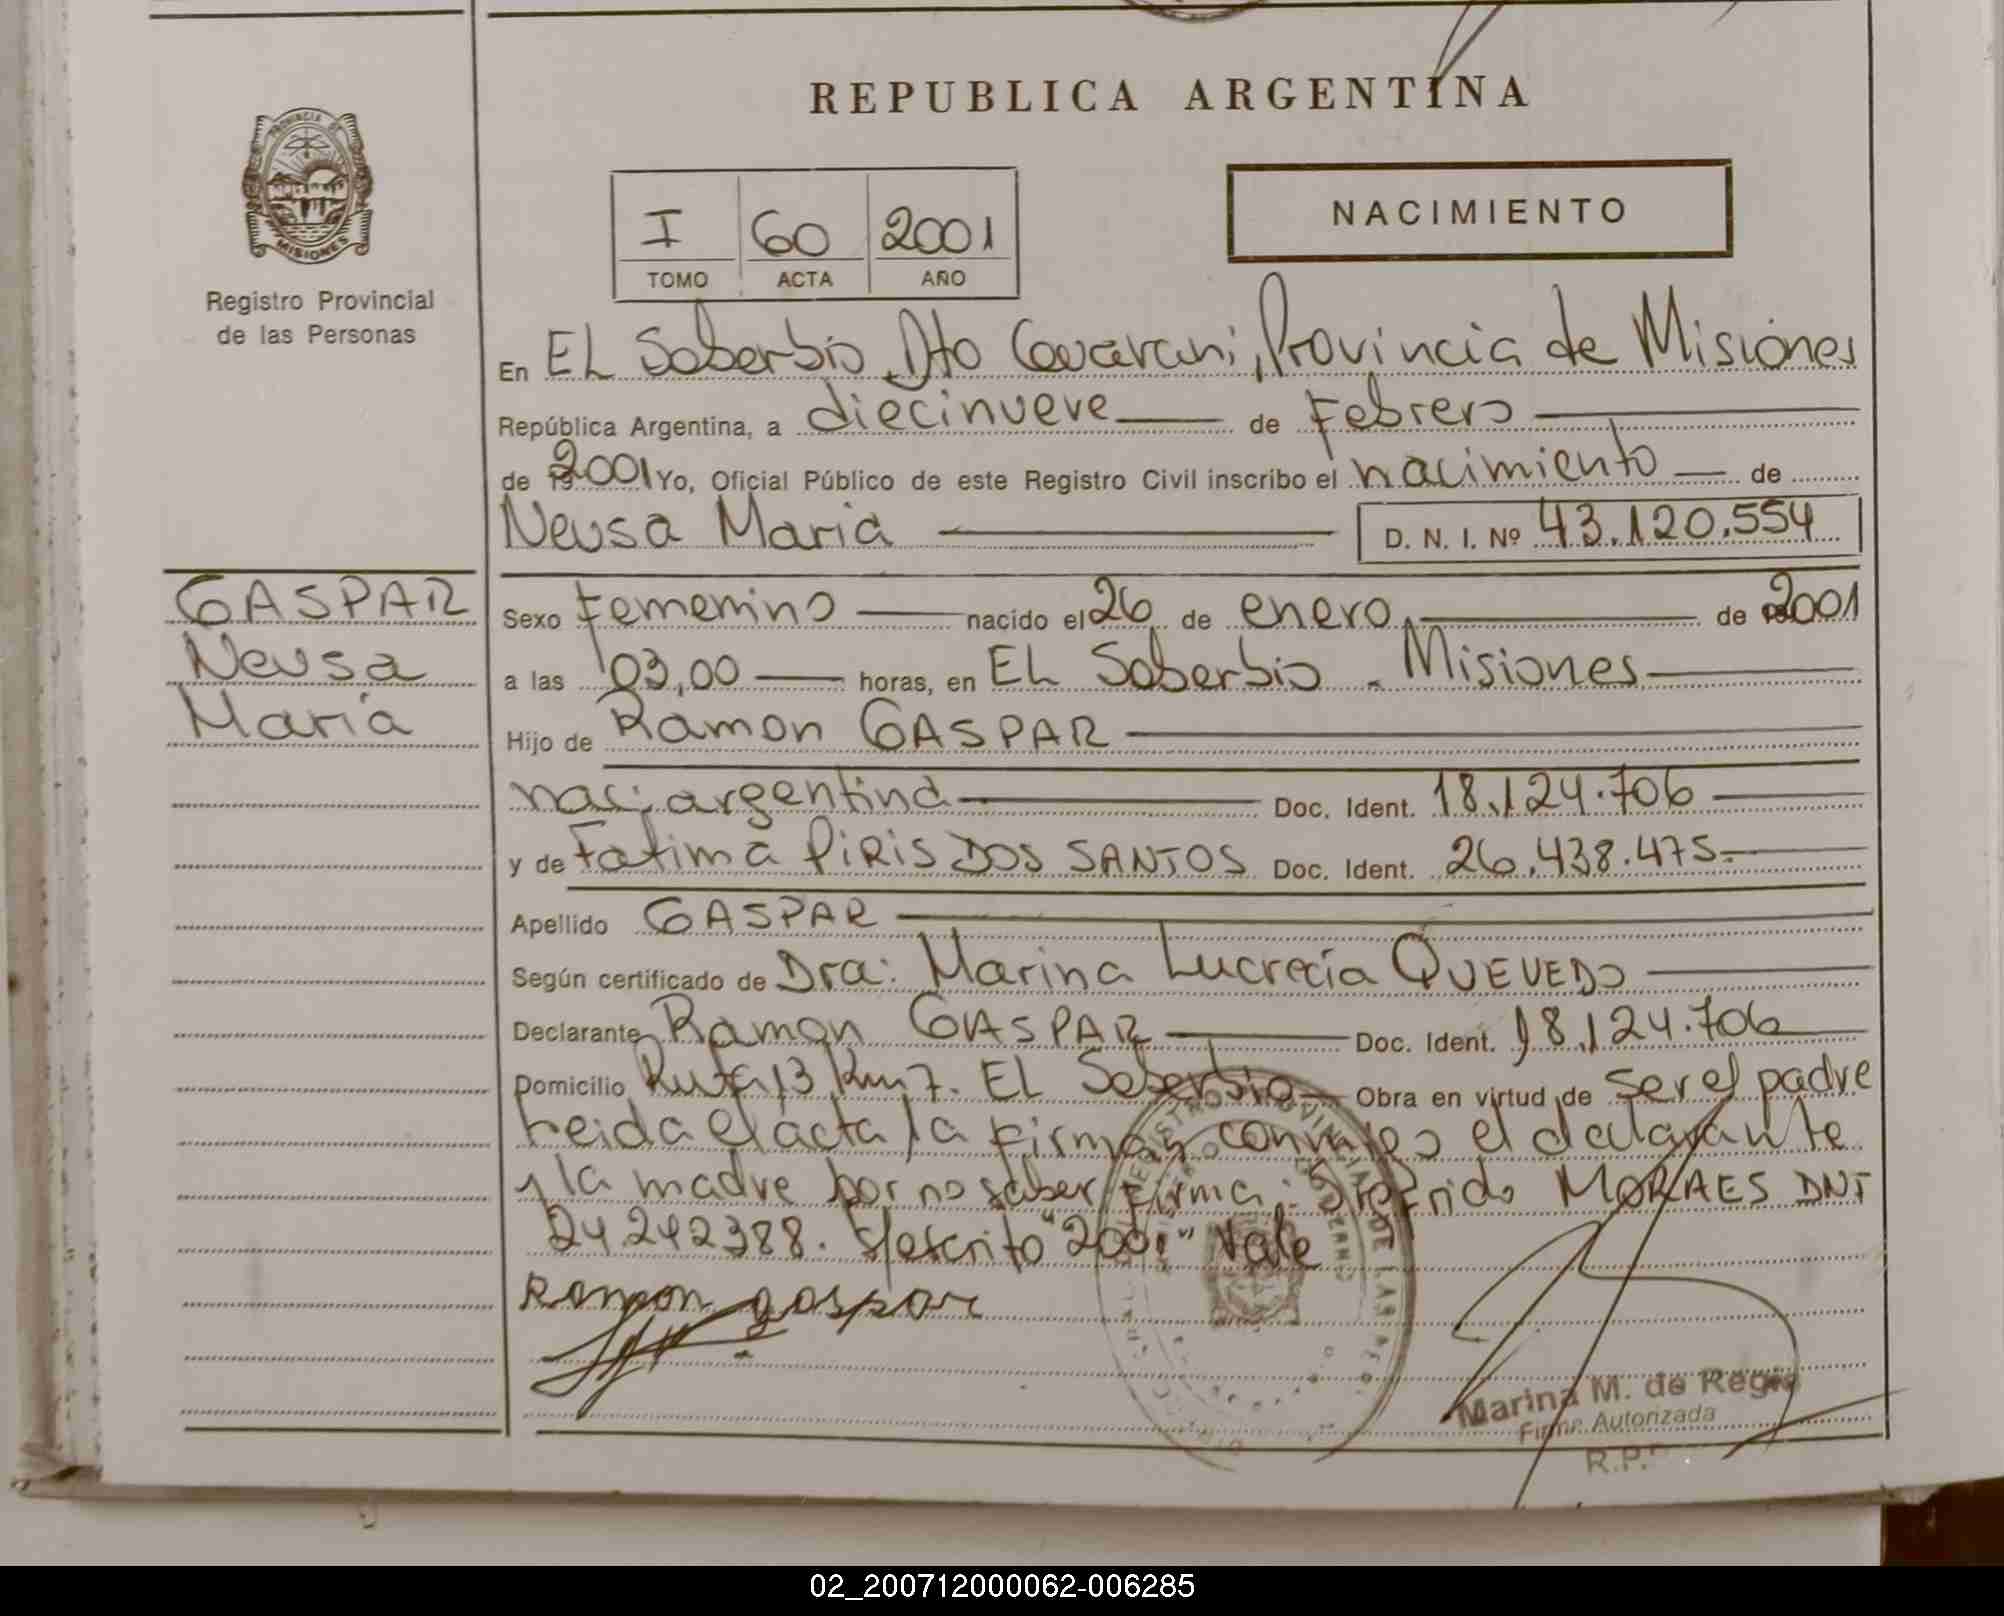 REPUBLICA ARGENTINA
PROVINCIA DE
MISIONES
Registro Provincial
de las Personas
I 60 2001
TOMO ACTA AÑO
NACIMIENTO
En EL Soberbio Dto Guarani, Provincia de Misiones
República Argentina, a diecinueve de Febrero
de 2001 Yo, Oficial Público de este Registro Civil inscribo el nacimiento de
Neusa Maria D. N. I. Nº 43.120.554
GASPAR
Neusa
María
Sexo Femenino nacido el 26 de enero de 2001
a las 03,00 horas, en EL Soberbio - Misiones
Hijo de Ramon GASPAR
nac: argentina Doc. Ident. 18.124.706
y de Fatima PIRIS DOS SANTOS Doc. Ident. 26.438.475.
Apellido GASPAR
Según certificado de Dra: Marina Lucrecia QUEVEDO
Declarante Ramon GASPAR Doc. Ident. 18.124.706
Domicilio Ruta 13 Km 7. EL Soberbio Obra en virtud de ser el padre
Leida el acta la firman conmigo el declarante
y la madre por no saber firma: MORAES DNI
24.242388. s/escrito "2001" Vale
Ramon gaspar
Marina M. de Regis
Firma Autorizada
R.P.
02_200712000062-006285